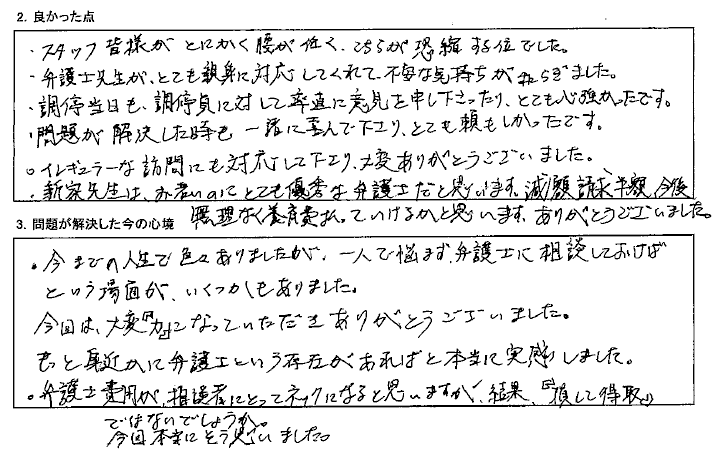 2. 良かった点
・スタッフ皆様がとにかく腰が低く、こちらが恐縮する位でした。
・弁護士先生が、とても親身に対応してくれて、不安な気持ちが和らぎました。
・調停当日も、調停員に対して率直に意見を申し下さったり、とても心強かったです。
・問題が解決した時も一緒に喜んで下さり、とても頼もしかったです。
○イレギュラーな訪問にも対応して下さり、大変ありがとうございました。
・新家先生は、お若いのにとても優秀な弁護士だと思います。減額請求半額、今後
無理なく養育費払っていけるかと思います。ありがとうございました。
3. 問題が解決した今の心境
・今までの人生で色々ありましたが、一人で悩まず、弁護士に相談しておけば
という場面が、いくつかもありました。
今回は、大変『力』になっていただきありがとうございました。
もっと身近かに弁護士という存在があればと本当に実感しました。
・弁護士費用が、相談者にとってネックになると思いますが、結果、『損して得取』
ではないでしょうか。
今回本当にそう思いました。